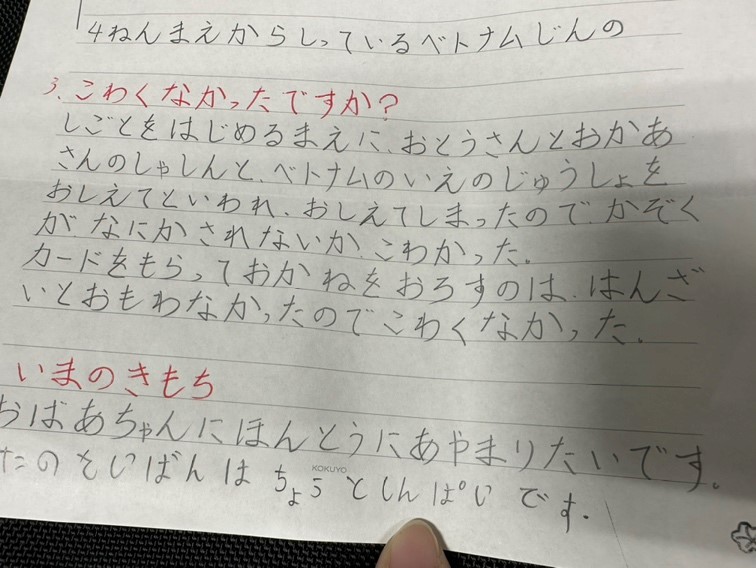 4ねんまえからしっているベトナムじんの
3. こわくなかったですか?
しごとをはじめるまえに、おとうさんとおかあ
さんのしゃしんと、ベトナムのいえのじゅうしょを
おしえてといわれ、おしえてしまったので、かぞく
がなにかされないか、こわかった。
カードをもらっておかねをおろすのは、はんざ
いとおもわなかったのでこわくなかった。
いまのきもち
おばあちゃんにほんとうにあやまりたいです。
KOKUYO
たのさいばんは ちょうとしんぱい です。